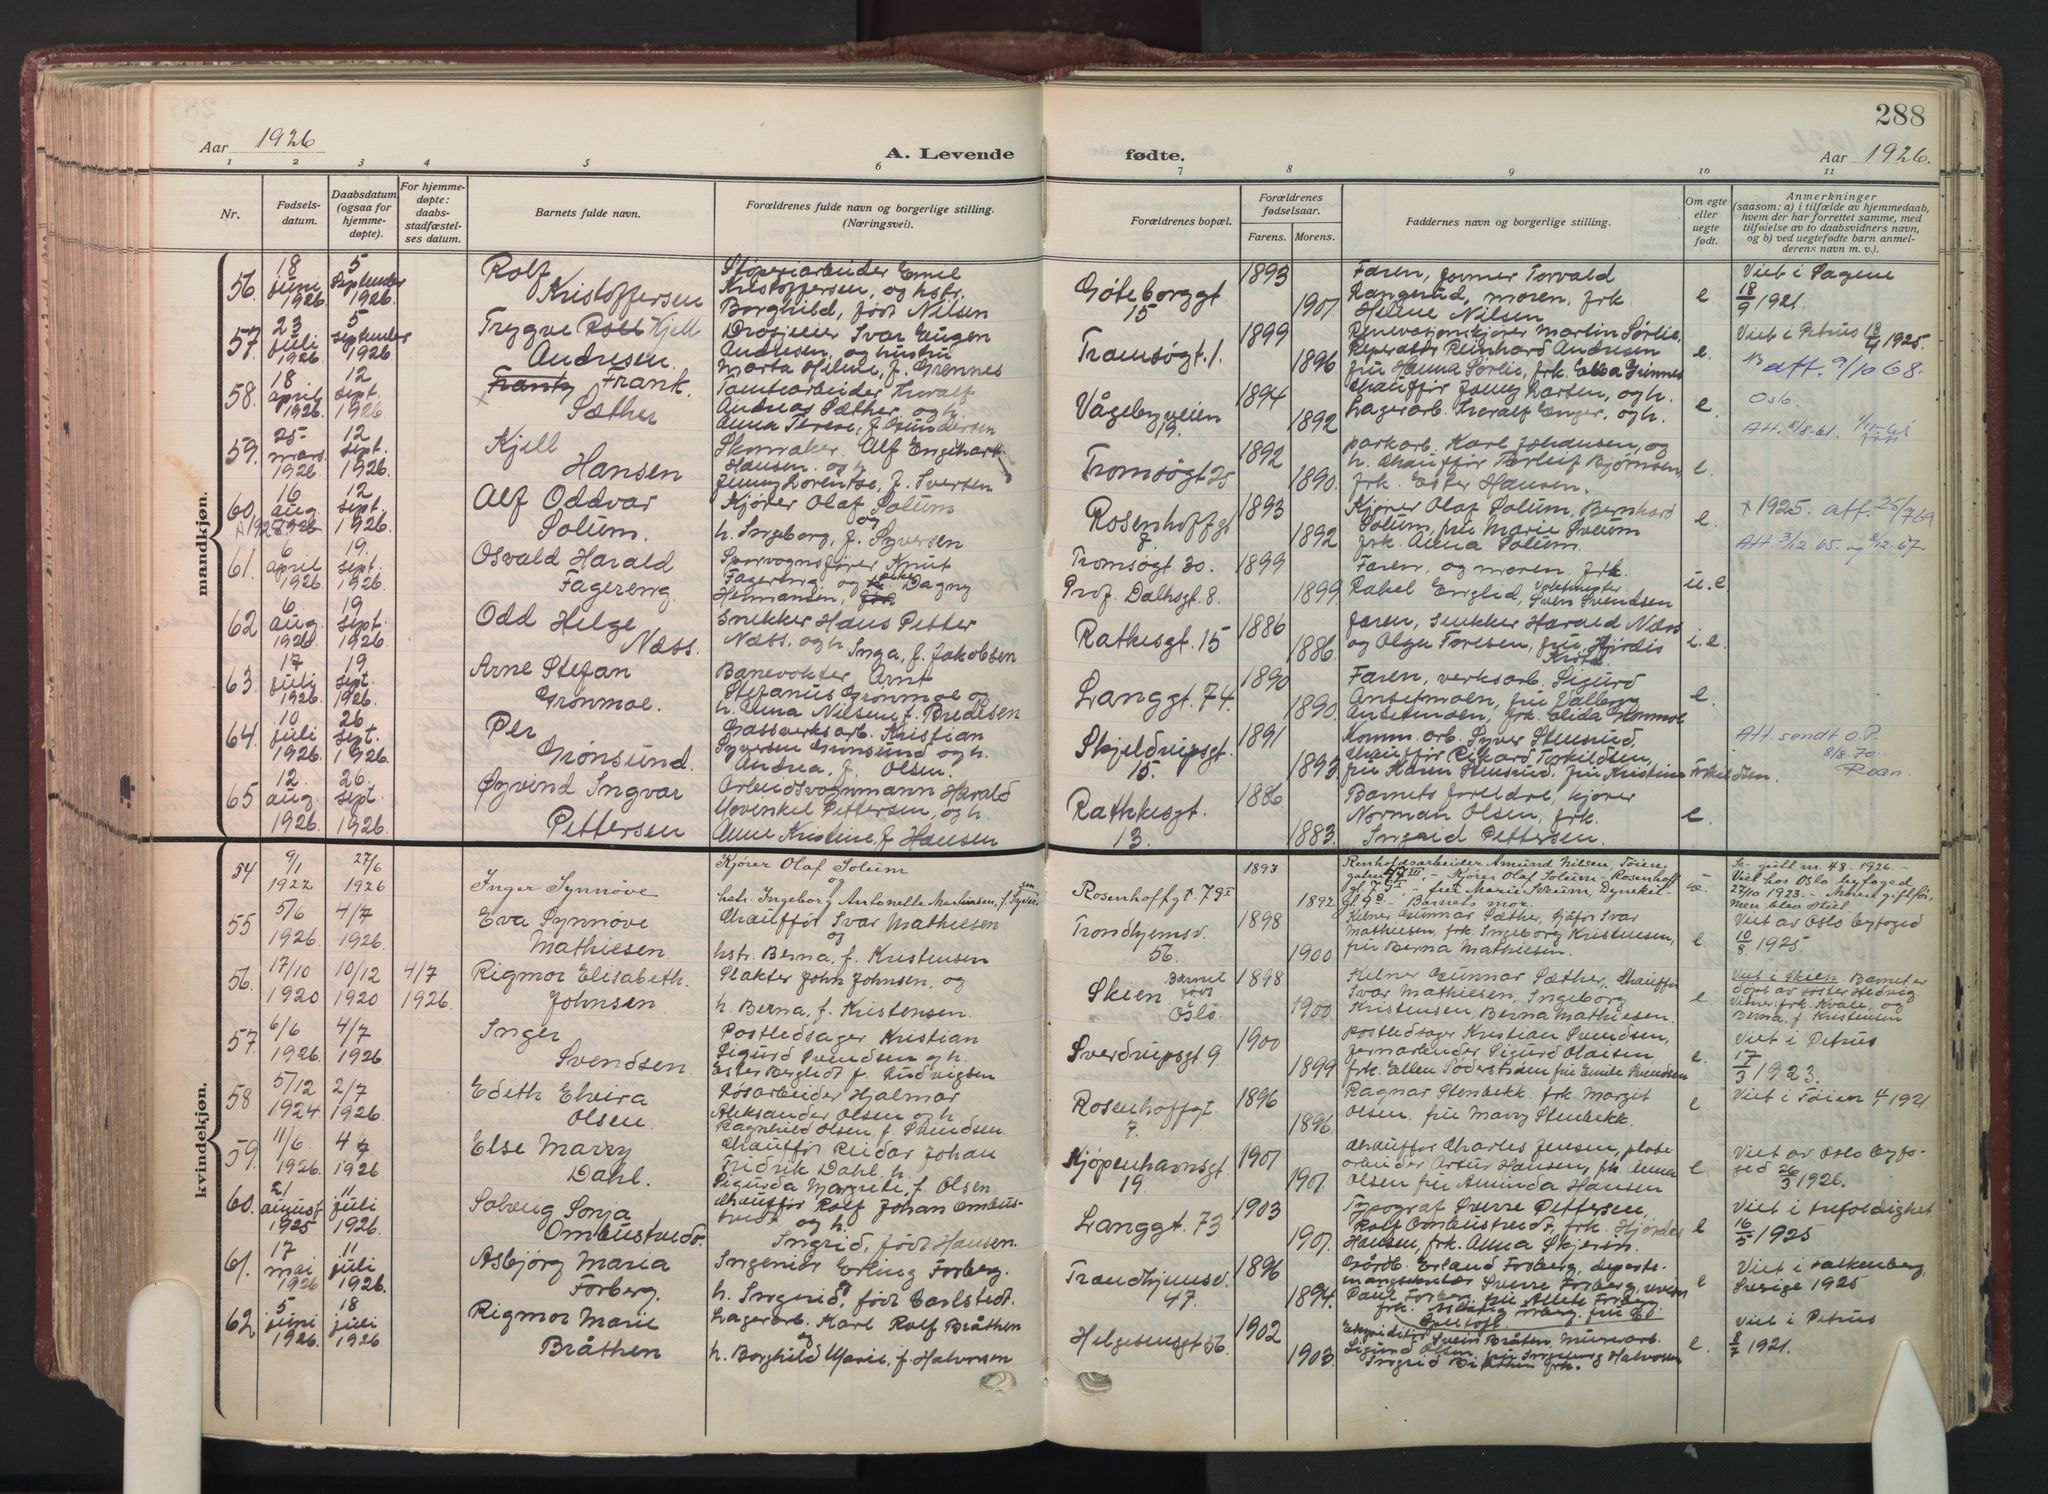 288
Aar 1926
A. Levende fødte.
Aar 1926.
1 2 3 4 5 6 7 8 9 10 11
Nr.
Fødselsdatum.
Daabsdatum (ogsaa for hjemmedøpte).
For hjemmedøpte: daabsstadfæstelses datum.
Barnets fulde navn.
Forældrenes fulde navn og borgerlige stilling. (Næringsvei).
Forældrenes bopæl.
Forældrenes fødselsaar.
Farens. Morens.
Faddernes navn og borgerlige stilling.
Om egte eller uegte født.
Anmerkninger
(saasom: a) i tilfælde av hjemmedaab, hvem der har forrettet samme, med tilføielse av to daabsvidners navn, og b) ved uegtefødte barn anmelderens navn m. v.).
mandkjøn.
56. 18 juni 1926 5 September 1926.
Rolf Kristoffersen
Støperiarbeider Emil
Kristoffersen, og hstr.
Borghild, født Nilsen
Gøteborggt 15
1893 1901
Faren, former Torvald
Rangerud, moren, frk
Helene Nilsen
e
Viet i Sagene
18/9 1921.
57. 23 juli 1926. 5 september 1926
Trygve Kjell
Andresen.
Drosjeeier Ivar Eugen
Andresen, og hustru
Marta Helene, f. Grennes
Tromsøgt. 1.
1899 1896
Renovasjonskjører Martin Sørlie,
Reinhard Andresen
fru Hanna Sørlie, frk. Ella Grennes
e.
Viet i Petrus 18/4 1925.
att. 9/10 68.
58. 18 april 1926. 12 sept. 1926
Frantz Frank.
Sæther
Tomtearbeider Thoralf
Andreas Sæther, og h.
Anna Terese, f. Gundersen
Vågebyveien 19.
1894 1892
Chauffør Jonny Larsen, og h.
Lagerarb. Thoralf Enger, og h.
e.
Oslo.
Att. 8/8-61.
59. 25- mars. 1926 12 sept. 1926.
Kjell
Hansen
Skomaker. Alf Engelhart
Hansen og h.
Jenny Lorentse, f. Iversen
Tromsøgt 25
1892 1890.
parkarb. Karl Johansen, og
h. Chauffør Torleif Bjørnsen,
frk. Ester Hansen.
e.
60. 16 aug. 1926 12 sept. 1926.
x 1925
Alf Oddvar
Solum.
Kjører Olaf Solum
og
h. Ingeborg, f. Syversen
Rosenhoffgt 7.
1893 1892
Kjører Olaf Solum, Bernhard
Solum, fru Marie Sveum
frk. Anna Solum.
e.
x 1925. att. 25/7 69
61. 6 april 1926. 19. sept. 1926
Osvald Harald
Fagereng.
Sporvognsfører Knut
Fagereng og Dagny
Hermansen,
Tromsøgt. 30.
Prof. Dahlsgt. 8.
1899 1899
Faren, og moren, frk.
Rakel Englid, Sven Svendsen
u.e
Att. 3/12 65. og 8/12-67.
62 6 aug. 1926. 19 sept. 1926.
Odd Helge
Næss.
Snekker Hans Petter
Næss. og h.
Inga, f. Jakobsen
Rathkesgt. 15
1886 1886.
Faren, snekker Harald Næss
og Olga Toresen, fru Hjørdis
e.
63. 17 juli 1926. 19 sept. 1926.
Arne Stefan
Grønmoe.
Banevokter Arnt
Stefanus Grønmoe og
h. Anna Nilsen f. Bredesen
Langgt. 74.
1890 1890.
Faren, verksarb. Sigurd
Ansetmoen, fru Valborg
Ansetmoen, frk. Elida Grønmoe
e.
64. 10 juli 1926. 26 sept. 1926.
Per
Grønsund.
Gassverksarb. Kristian
Syversen Grønsund og h.
Andrea, f. Olsen.
Skjeldrupsgt. 15.
1891 1893.
Komm. arb. Syver Stensrud,
Chauffør Rikard Torkildsen,
fru Karen Stensrud, fru Kristine Torkildsen.
Att. sendt O.P.
8/8.70.
65 12. aug. 1926. 26. sept. 1926.
Øyvind Ingvar
Pettersen
Arbeidsvognmann Harald
Hovenkel Pettersen, og h.
Anne Kristine, f. Hansen
Rathkesgt. 13.
1886 1883.
Barnets foreldre, kjører
Norman Olsen, frk.
Ingrid Pettersen.
e.
kvindekjøn.
54 9/1 1922 27/6 1926
Inger Synnøve
Kjører Olaf Solum
og
hstr. Ingeborg Antonette Martinsen, f. Syversen
Rosenhoffgt 7
1893 1892
Renholdsarbeider Amund Nilsen, Tøien-
gaten 47 III, – Kjører Olaf Solum – Rosenhoff
gt. 7 – fru Marie Sveum, Dynekil-
gt. 9 – Barnets mor.
Se gutt nr 48-1926. –
Viet hos Oslo byfoged
27/10 1923. –
55 5/6 1926. 4/7 1926.
Eva Synnøve
Mathiesen.
Chauffør Ivar Mathiesen
og
hstr. Berna, f. Kristensen
Trondhjemsv. 56.
1898 1900
Kelner Gunnar Sæther, Sjåfør Ivar
Mathiesen, frk. Ingeborg Kristensen,
fru Berna Mathiesen.
e
Viet av Oslo byfoged
10/8 1925
56. 17/10 1920 10/12 1920 4/7 1926.
Rigmor Elisabeth.
Johnsen
Slakter John Johnsen, og
h. Berna, f. Kristensen.
Skien. Barnet født Oslo.
1898 1900.
Kelner Gunnar Sæther, Chauffør
Ivar Mathiesen, Ingeborg
Kristensen, Berna Mathiesen.
e.
Viet i Skien. Barnet er
døpt av søster Hedvig
Vitner: frk. Kvale, og
Berna, f. Kristensen
57. 6/6 1926. 4/7 1926.
Inger
Svendsen.
Postledsager Kristian
Sigurd Svendsen og h.
Ester Berglidt f. Ludvigsen
Sverdrupsgt. 9
1900 1899
Postledsager Kristian Svendsen,
Jernarbeider Sigurd Olaisen
frk. Ellen Söderström fru Emilie Svendsen
e.
Viet i Petrus
17/3 1923.
58 5/12 1924. 2/7 1926.
Edith Elvira
Olsen.
Løsarbeider Hjalmar
Aleksander Olsen og h.
Ragnhild Olsen f. Svendsen.
Rosenhoffgt 7.
1896 1896.
Ragnar Stenbekk, frk. Margit
Olsen, fru Marry Stenbekk.
e
Viet i Tøien 1921.
59. 11/6 1926. 4/7 1926
Else Marry
Dahl.
Chauffør Reidar Johan
Fridrik Dahl. h.
Sigurda Margrete, f. Olsen
Kjøpenhavnsgt. 19.
1901 1901.
Chauffør Charles Jensen, plate-
arbeider Artur Hansen, frk. Anna
Olsen fru Aminda Hansen
e
Viet av Oslo byfo-
ged 26/3 1926.
60. 21 august 1925 11 juli 1926.
Solveig Sonja
Ombustvedt.
Chauffør Rolf Johan Ombust-
vedt og h.
Ingrid, født Hansen.
Langgt. 73
1903 1901.
Typograf Sverre Pettersen,
Rolf Ombustvedt, frk. Hjørdis
Hansen, frk. Anna Skjerin.
e
Viet i trefoldighet
16/5 1925
61. 17 mai 1926 11 juli 1926.
Asbjørg Maria
Forberg.
Ingeniør Erling Forberg.
h. Ingrid, født Carlstedt.
Trondhjemsv. 47.
1896 1894.
Gårdb. Erland Forberg,
Sverre Forberg,
Paul Forberg
e
Viet i Falkenberg,
Sverige 1925
62. 5 juni 1926. 18 juli 1926.
Rigmor Marie
Bråthen
Lagerarb. Karl Rolf Bråthen
og
h. Borghild Marie, f. Halvorsen
Helgesensgt 56.
1902 1903.
Ekspeditør Svein Bråten, Murerarb.
Sigurd Olsen, fru Ingeborg Halvorsen
Ingrid Bråthen frk.
e.
Viet i Petrus
8/7 1921.